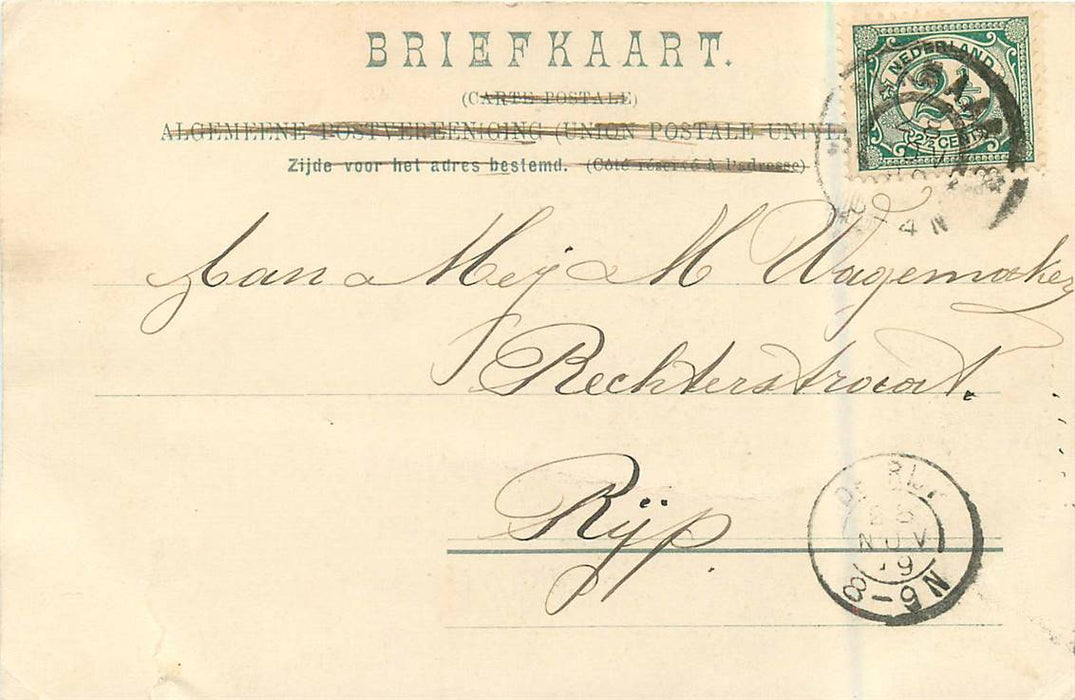 BRIEFKAART.
(CARTE POSTALE)
ALGEMEENE POSTVEREENIGING (UNION POSTALE UNIVE
Zijde voor het adres bestemd. (Côté réservé à l'adresse)
NEDERLAND
2½
2½ CENT
4 N
Aan Mej M Wagemaker
Rechterstraat.
Rijp.
DE RIJP
NOV
8-9 N